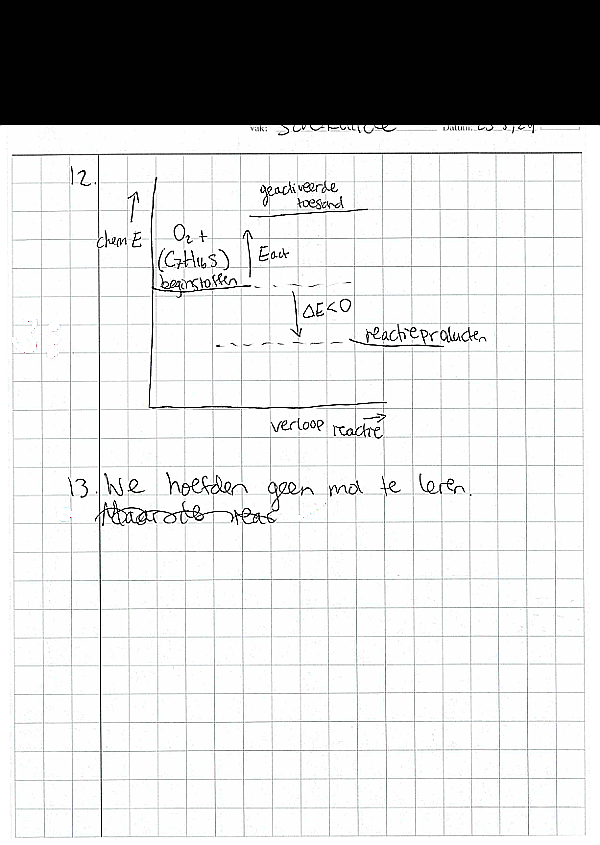 vak: Scheikunde Datum:
12.
geactiveerde
toesand
chem E
O₂ +
(C₇H₁₆S)
beginstoffen
Eact
ΔE<0
reactieproducten
verloop reactie
13. We hoefden geen mol te leren.